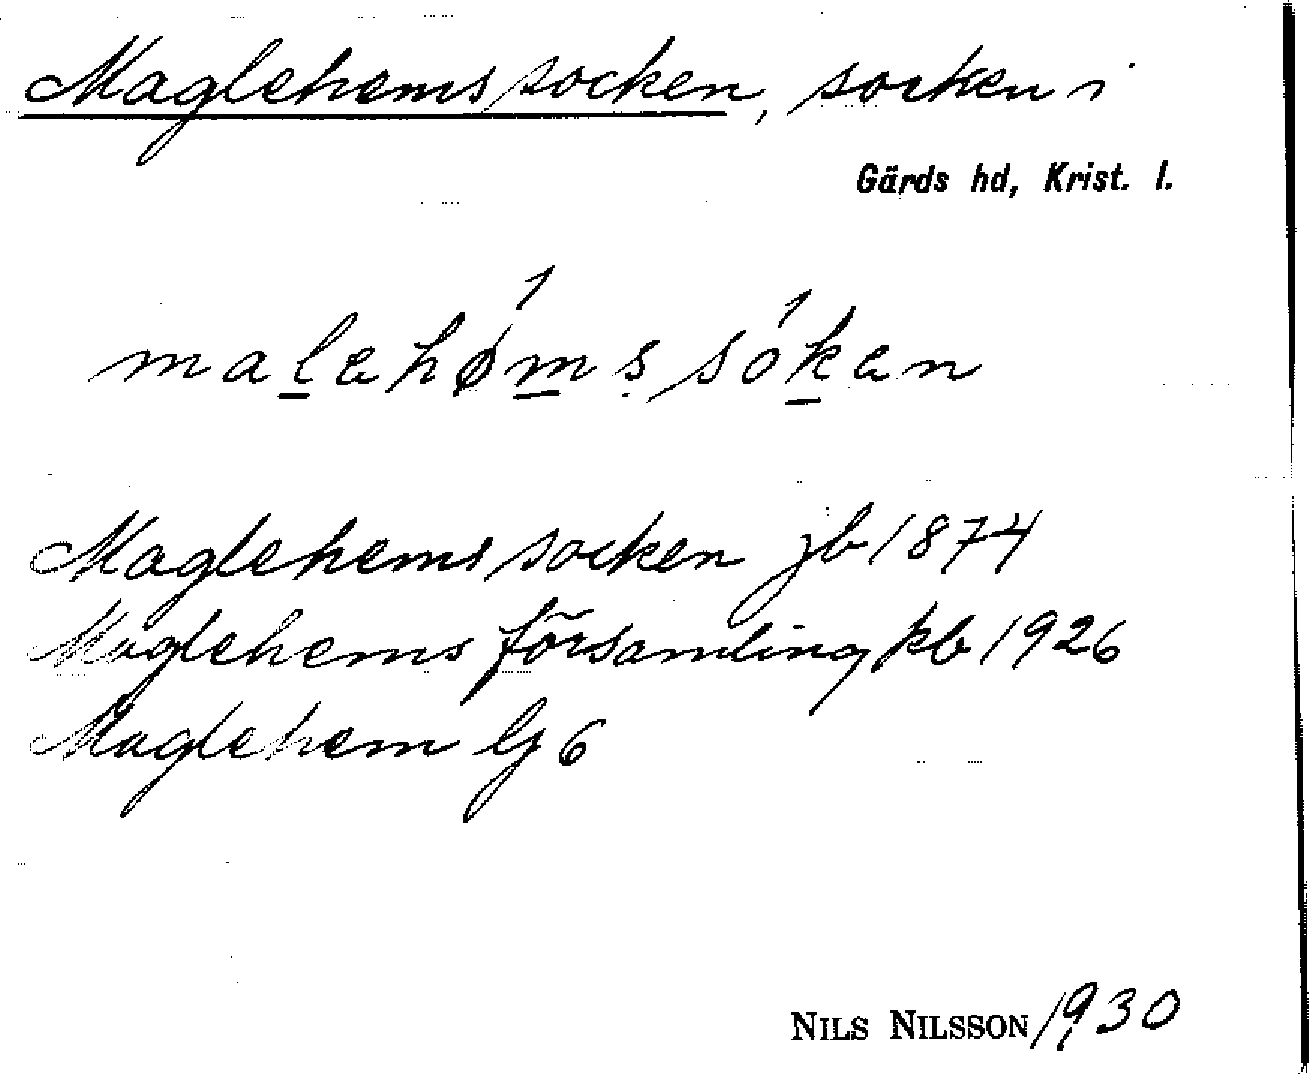 Maglehems socken, socken i
Gärds hd, Krist. l.
malahøms sókan
Maglehems socken jb 1874
Maglehems församling kb 1926
Maglehem G 6
NILS NILSSON 1930